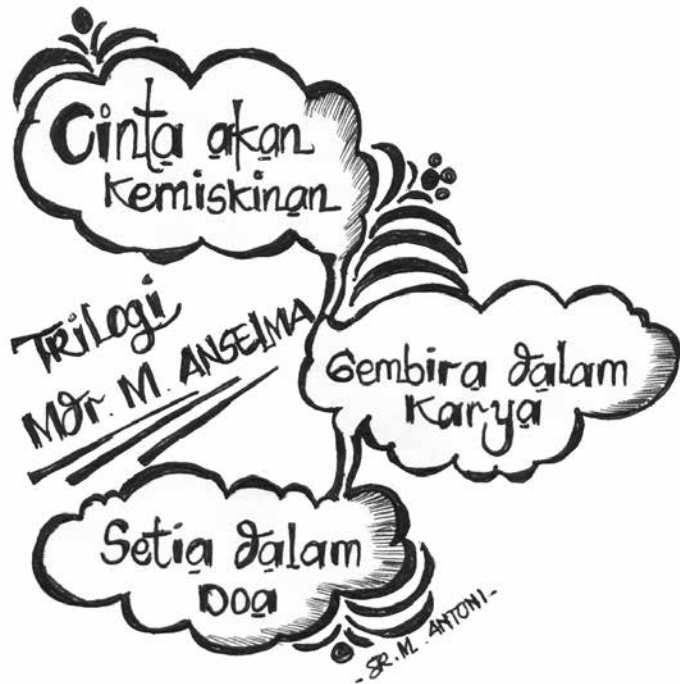 Cinta akan
Kemiskinan
Trilogi
Mdr. M. ANSELMA
Gembira dalam
Karya
Setia dalam
Doa
- SR. M. ANTONI -